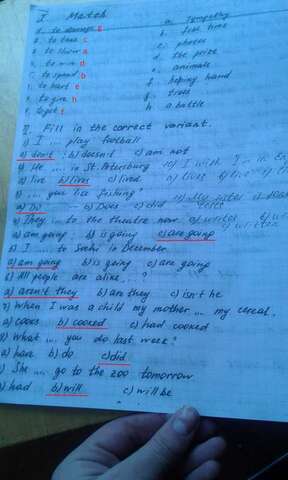 I. Match
to damage g a. sympathy
to take c b. free time
to show a c. photos
to win d d. the prize
to spend b e. animals
to hurt e f. heping hand
to give h g. trees
h. a battle
II. Fill in the correct variant.
1) I ... play football
a) don't b) doesn't c) am not
He .... in St. Petersburg
a) live b) lives c) lived
.... you like fishing?
a) Do b) Does c) did
They .... to the theatre now
a) am going b) is going c) are going
I .... to Sochi in December
a) am going b) is going c) are going
6) All people are alike, .. ?
a) aren't they b) are they c) isn't he
7) When I was a child my mother ... my cereal.
a) cooks b) cooked c) had cooked
What ... you do last week?
a) have b) do c) did
She ... go to the zoo tomorrow
a) had b) will c) will be